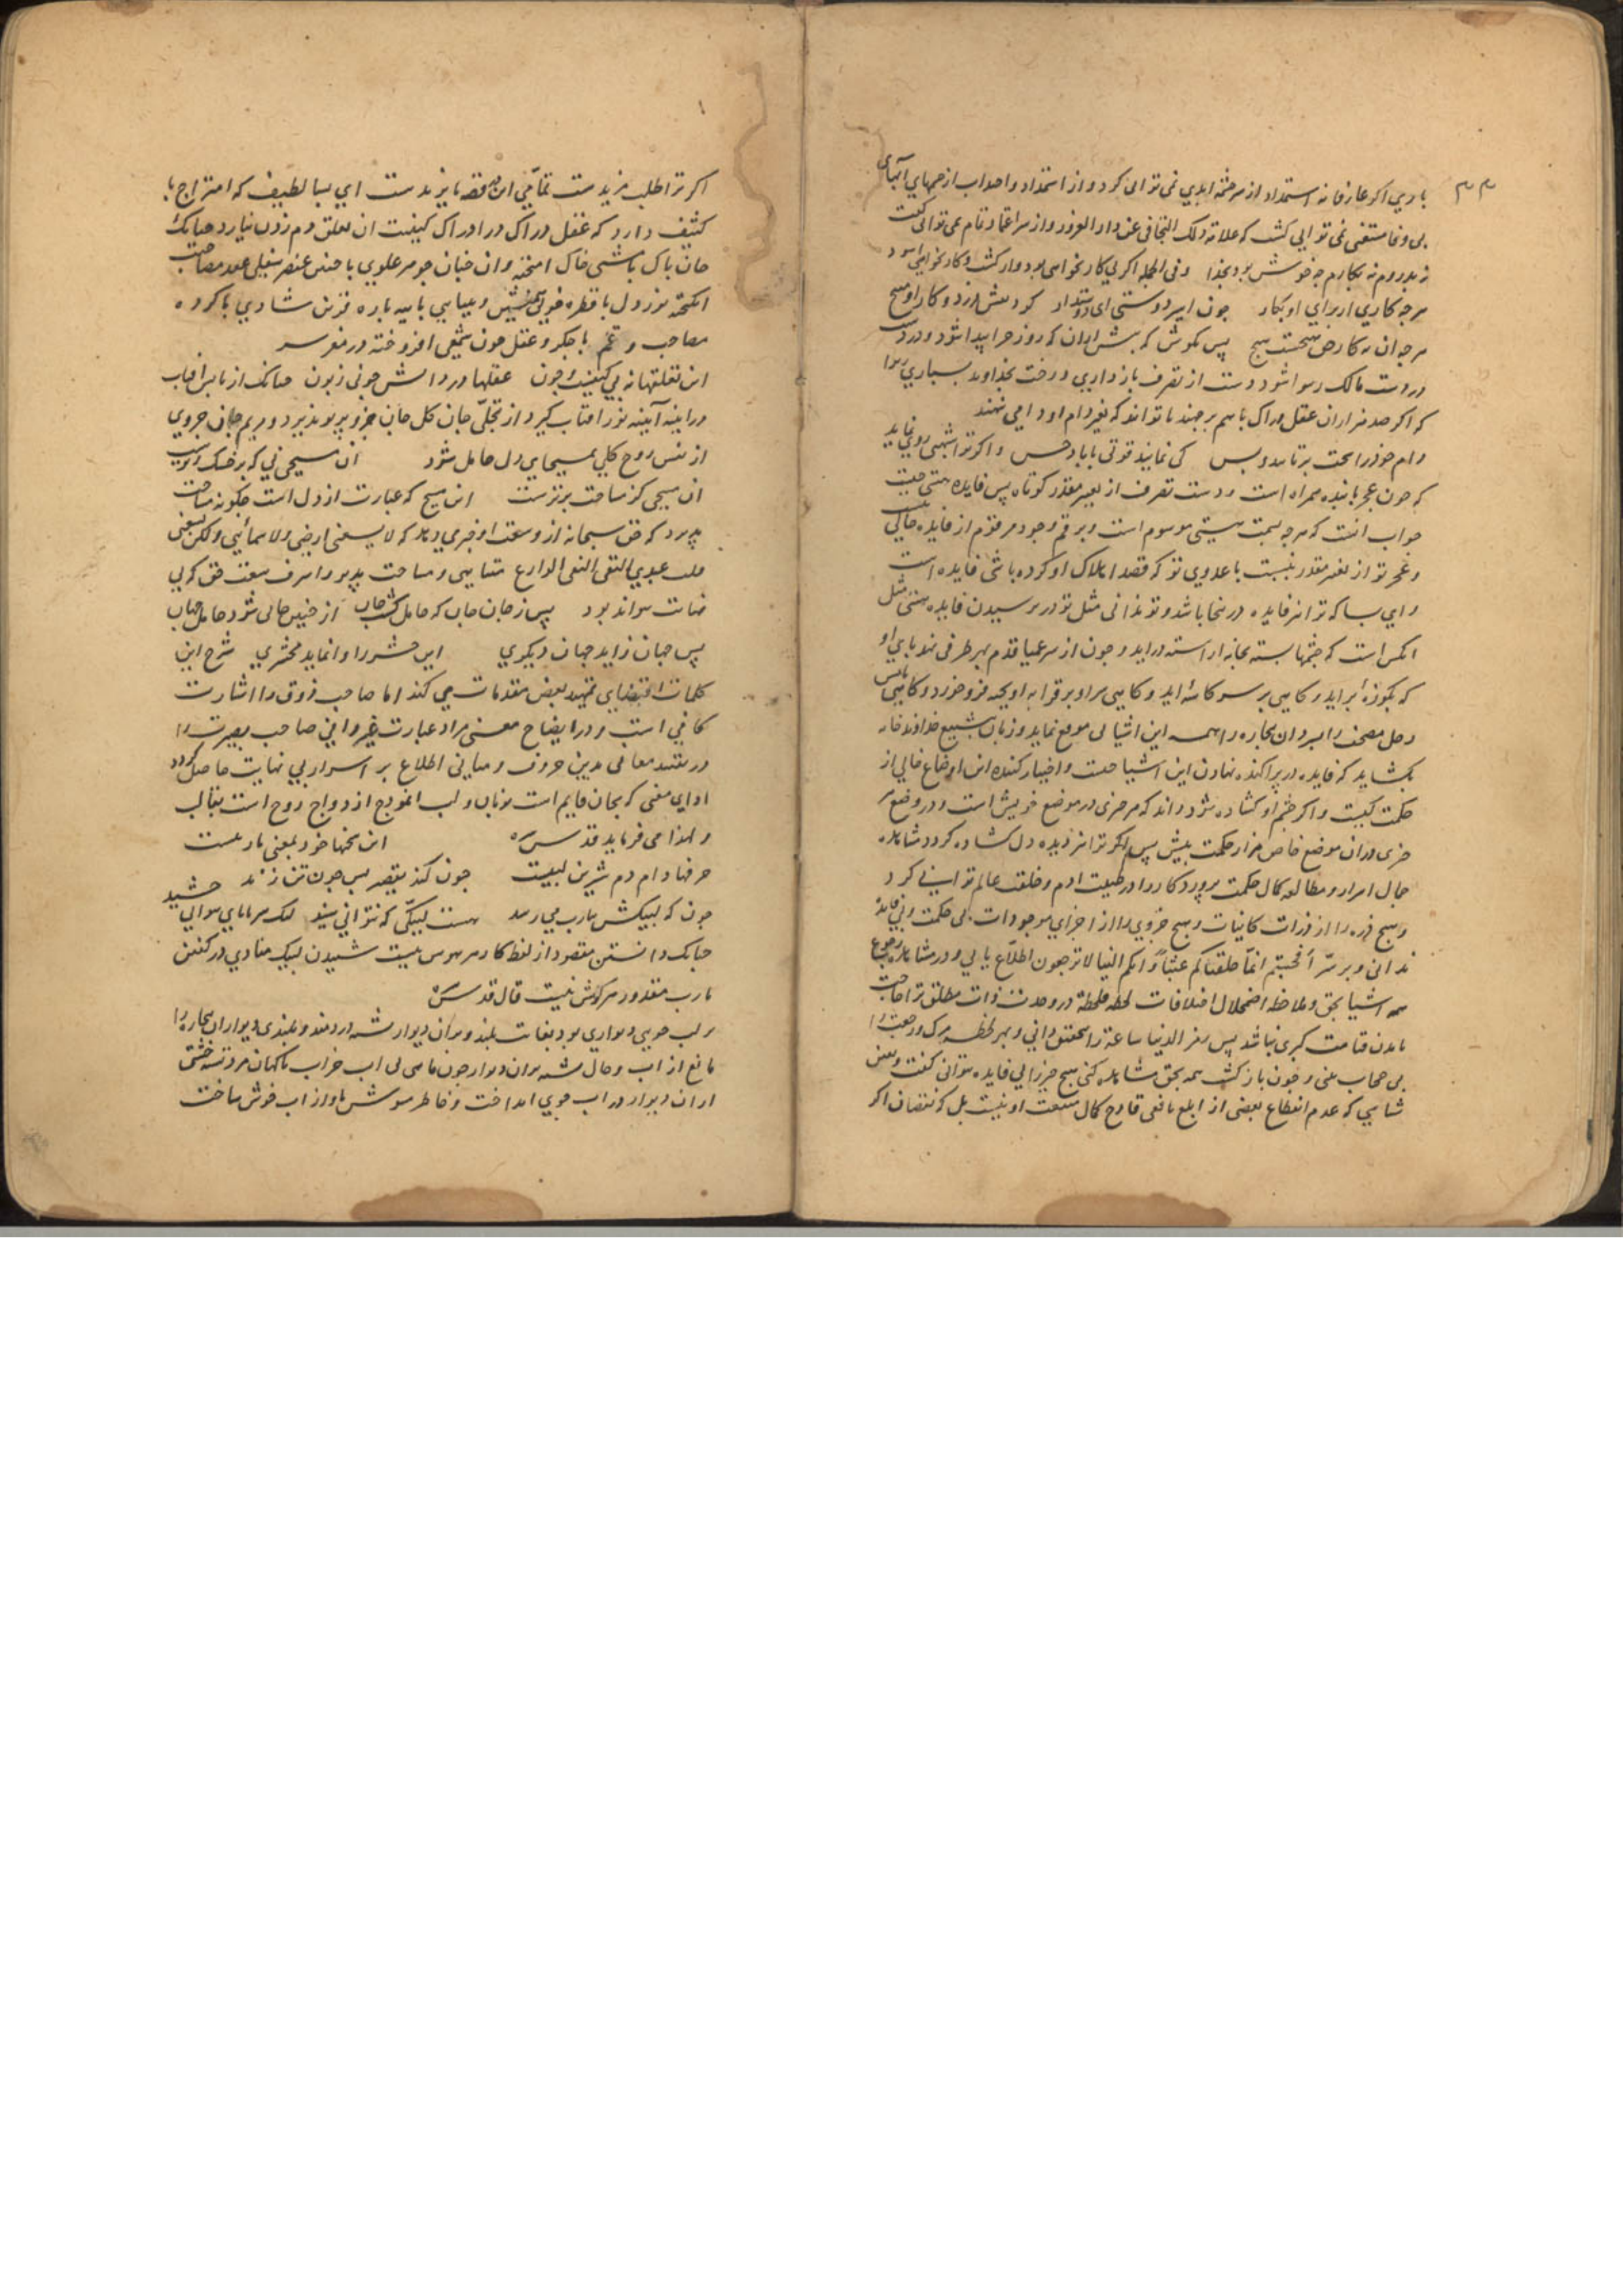 ۳۳
باری اکر عارفانه استمداد از سرچشمه ابدی نمی توانی کرد و از استمداد و اجداب از جمهای آبهای
بی وفا مستغنی نمی توانی کشت که علامة ذلک التجافی عن دار الغرور و از سر اعتماد تمام نمی توانی کفت
وفی الجمله اکر بی کار نخواهی بود
هرچه کاری از برای او بکار چون اسیر دوستی ای دوستدار کرد
هرجه آن نه کار حق هیچست هیچ پس بکوش که پیش ازان که روز جزا پیدا شود و دزد
در دست مالک رسوا شود دست از تصرف باز داری و رخت بذو
که اکر صد هزاران عقل دراک با هم بر جهند تا توانند که بغیر دام او دامی نهند
دام خود را سخت تر یابند و بس کی نماید قوتی با باد خس و اکر ترا شبهتی روی نماید
که چون عجز با بنده همراه است و دست تصرف از تغییر مقدر کوتاه پس فایده هستی چیست
جواب انست که هرچه بسمت هستی موسوم است و برقم وجود مرقوم از فایده خالی نیست
و عجز تو از تغییر مقدر بنسبت با عدوی تو که قصد اهلاک او کرده باشی فایده است
و ای بسا که ترا نیز فایده در نجا باشد و تو ندانی مثل تو در نرسیدن فایده هستی مثل
انکس است که چشمها بسته بخانه اراسته دراید و چون از سر عمیا قدم بهر طرفی نهد پای او
که بکوزه براید و کاهی بر سر کاسه اید و کاهی سر او بر قرابه اویخته فرو خورد و کاهی
رحل مصحف را این بیچاره را همه این اشیا بی موقع نماید و زبان بتشنیع خداوند خانه
بکشاید که فایده در پراکنده نهادن این اشیا چیست و اختیار کننده این اوضاع خالی از
حکمت کیست و اکر چشم او کشاده شود داند که هر چیزی در موضع خویش است و در وضع هر
چیزی دران موضع خاص هزار حکمت بیش پس اکر ترا نیز دیده دل کشاده کردد مشاهده
جمال اسرار و مطالعه کمال حکمت پروردکار را در طینت ادم و خلقت عالم توانی کرد
و هیچ ذره را از ذرات کاینات و هیچ جزوی را از اجزای موجودات بی حکمت و بی فایده
ندانی و بر سر أفحسبتم انما خلقناکم عبثا وانکم الینا لا ترجعون اطلاع یابی و در مشاهده رجوع
همه اشیا بحق و ملاحظه اضمحلال اختلافات لحظة فلحظة در وحدت ذات مطلق ترا حاجت
بآمدن قیامت کبری نباشد پس رمز الدنیا ساعة را محقق دانی و بهر لحظه مرک و رجعت را
بی حجاب بینی و چون بازکشت همه بحق مشاهده کنی هیچ چیز را بی فایده نتوانی کفت و یقین
شناسی که عدم انقطاع بعضی از ابلغ نافعی قادح کمال منفعت او نیست بل که نقصان اکر
اکر ترا طلب مزیدست تمامی این قصه بایزیدست ای بسا لطیف که امتزاج با
کثیف دارد که عقل دراک در ادراک کیفیت ان تعلق دم زدن نیارد چنانک
جان پاک با مشتی خاک امیخته و ان چنان جوهر علوی با چنین عنصر سفلی عقد مصاحبت
انکیخته نور دل با قطره خونی همنشین و بینایی با پیه پاره قرین شادی با کرده
مصاحب و غم با جکر و عقل چون شمعی افروخته در مغز سر
این تعلقها نه بی کیفست و چون عقلها در دانش چونی زبون چنانک از تابش افتاب
در اینه آینه نور افتاب کیرد از تجلی جان کل جان جزو پرتو پذیرد و مریم جان جزوی
از نفس روح کلی بمسیحای دل حامل شود ان مسیحی نی که بر خشک و ترست
ان مسیحی کز مساحت برترست این مسیح که عبارت از دل است چکونه مساحت
پذیرد که حق سبحانه از وسعت او خبری دهد که لا یسعنی ارضی ولا سمائی ولکن یسعنی
قلب عبدی التقی النقی الوارع متناهی و مساحت پذیر و اشرف سعت حق که بی
نهایت نتواند بود پس ز جان جان که حامل کشت جان از چنین جانی شود حامل جهان
پس جهان زاید جهان دیکری این حشر را وانماید محشری شرح این
کلمات اقتضای تمهید بعضی مقدمات می کند اما صاحب ذوق را اشارت
کافی است و در ایضاح معنی مراد عبارت غیر وافی صاحب بصیرت را
در تقید معانی بدین حروف و مبانی اطلاع بر اسرار بی نهایت حاصل کردد
ادای معنی که بجان قایم است بزبان و لب انموذج ازدواج روح است بقالب
و لهذا می فرماید قدس سره این سخنها خود بمعنی یا ربیست
حرفها دام دم شیرین لبیست چون کند تقصیر پس چون تن زند
چون که لبیکش بیارب می رسد هست لبیکی که نتوانی شنید لیک سر تا پای بتوانی چشید
چنانک دانستن مقصود از لفظ کار هر بیهوش نیست شنیدن لبیک منادی در کفتن
یارب مقدور هر کوش نیست قال قدس سره
بر لب جویی دیواری بود بغایت بلند و بران دیوار تشنه دردمند و بلندی دیوار ان بیچاره را
مانع از اب و حال تشنه بران دیوار چون ماهی بی اب خراب ناکهان مرد تشنه خشتی
ازان دیوار در اب جوی انداخت و خاطر مشوش باواز اب خوش ساخت